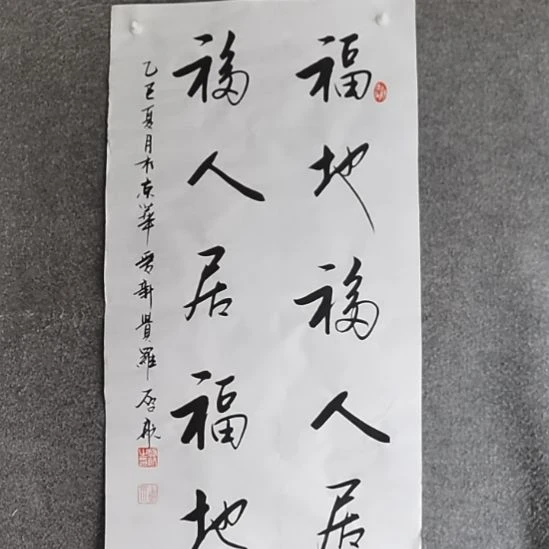 福地福人居
福人居福地
乙巳夏月於京華 晋新貴羅